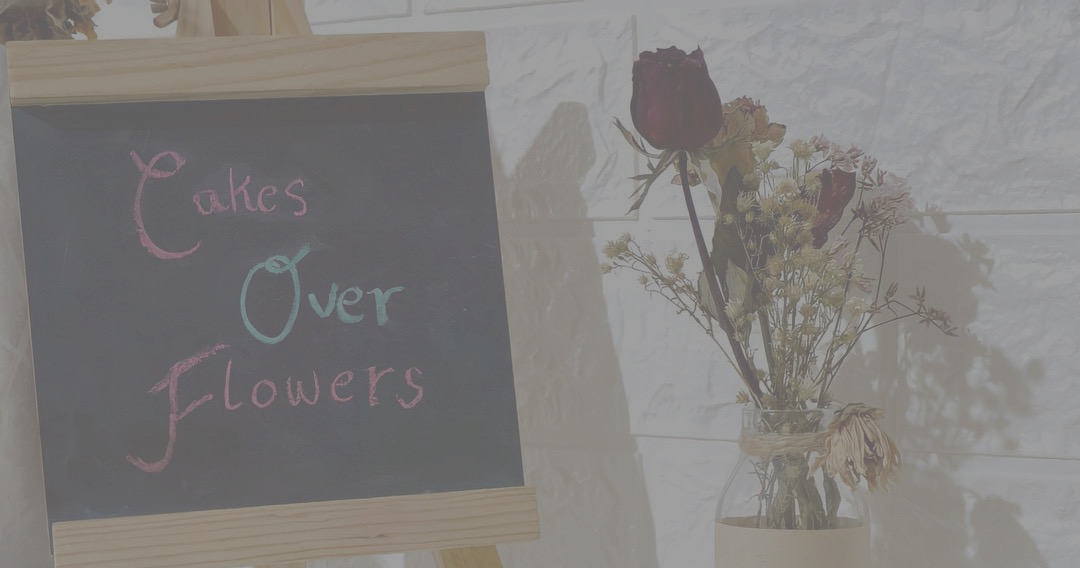 Cakes
Over
Flowers